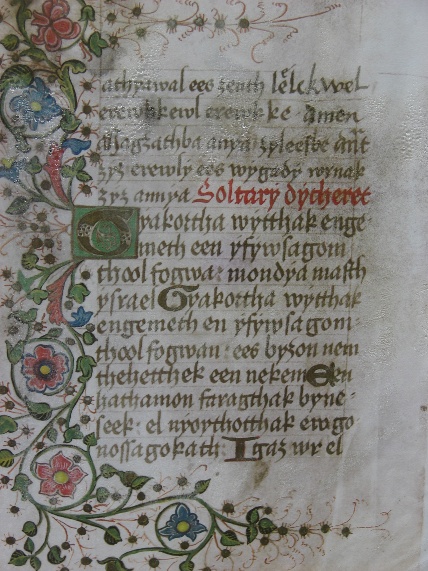 athyawal ees zenth lelckwel
erewkkewl erewkke amen
Nagzathba anya zyleefbe
zyz erewly ees wygady
zyz annya Soltary dycheret
Gyakortha wytthak enge
meth een yfywsagom
thool fogwa: mondya masth
ysrael Gyakortha wytthak
engemeth en yfywsagom
thool fogwan: ees byzon nem
thehetthek een nekem Een
hathamon faragthak byne-
seek: el nyoythotthak ewgo
nossagokath: Igaz wr el